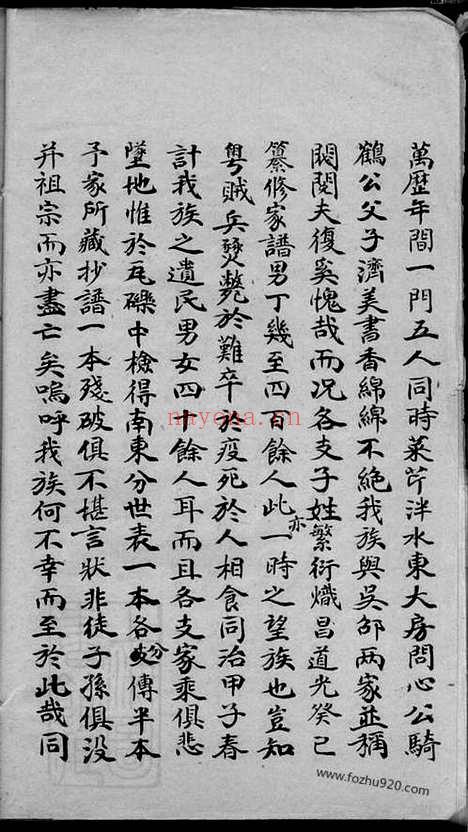 萬歷年間一門五人同時菜芹泮水東大房問心公騎
鶴公父子濟美書香綿綿不絕我族與吳邵两家並稱
閥閱夫復奚愧哉而况各支子姓繁衍熾昌道光癸已
纂修家譜男丁幾至四百餘人此亦一時之望族也豈知
粤賊兵燹斃於難卒於疫死於人相食同治甲子春
計我族之遺民男女四十餘人耳而且各支家乘俱悲
墜地惟於瓦礫中檢得南東分世表一本各分支傳半本
予家所藏抄譜一本殘破俱不堪言狀非徒子孫俱没
并祖宗而亦盡亡矣嗚呼我族何不幸而至於此哉同
nayona.cn
www.fozhu920.com